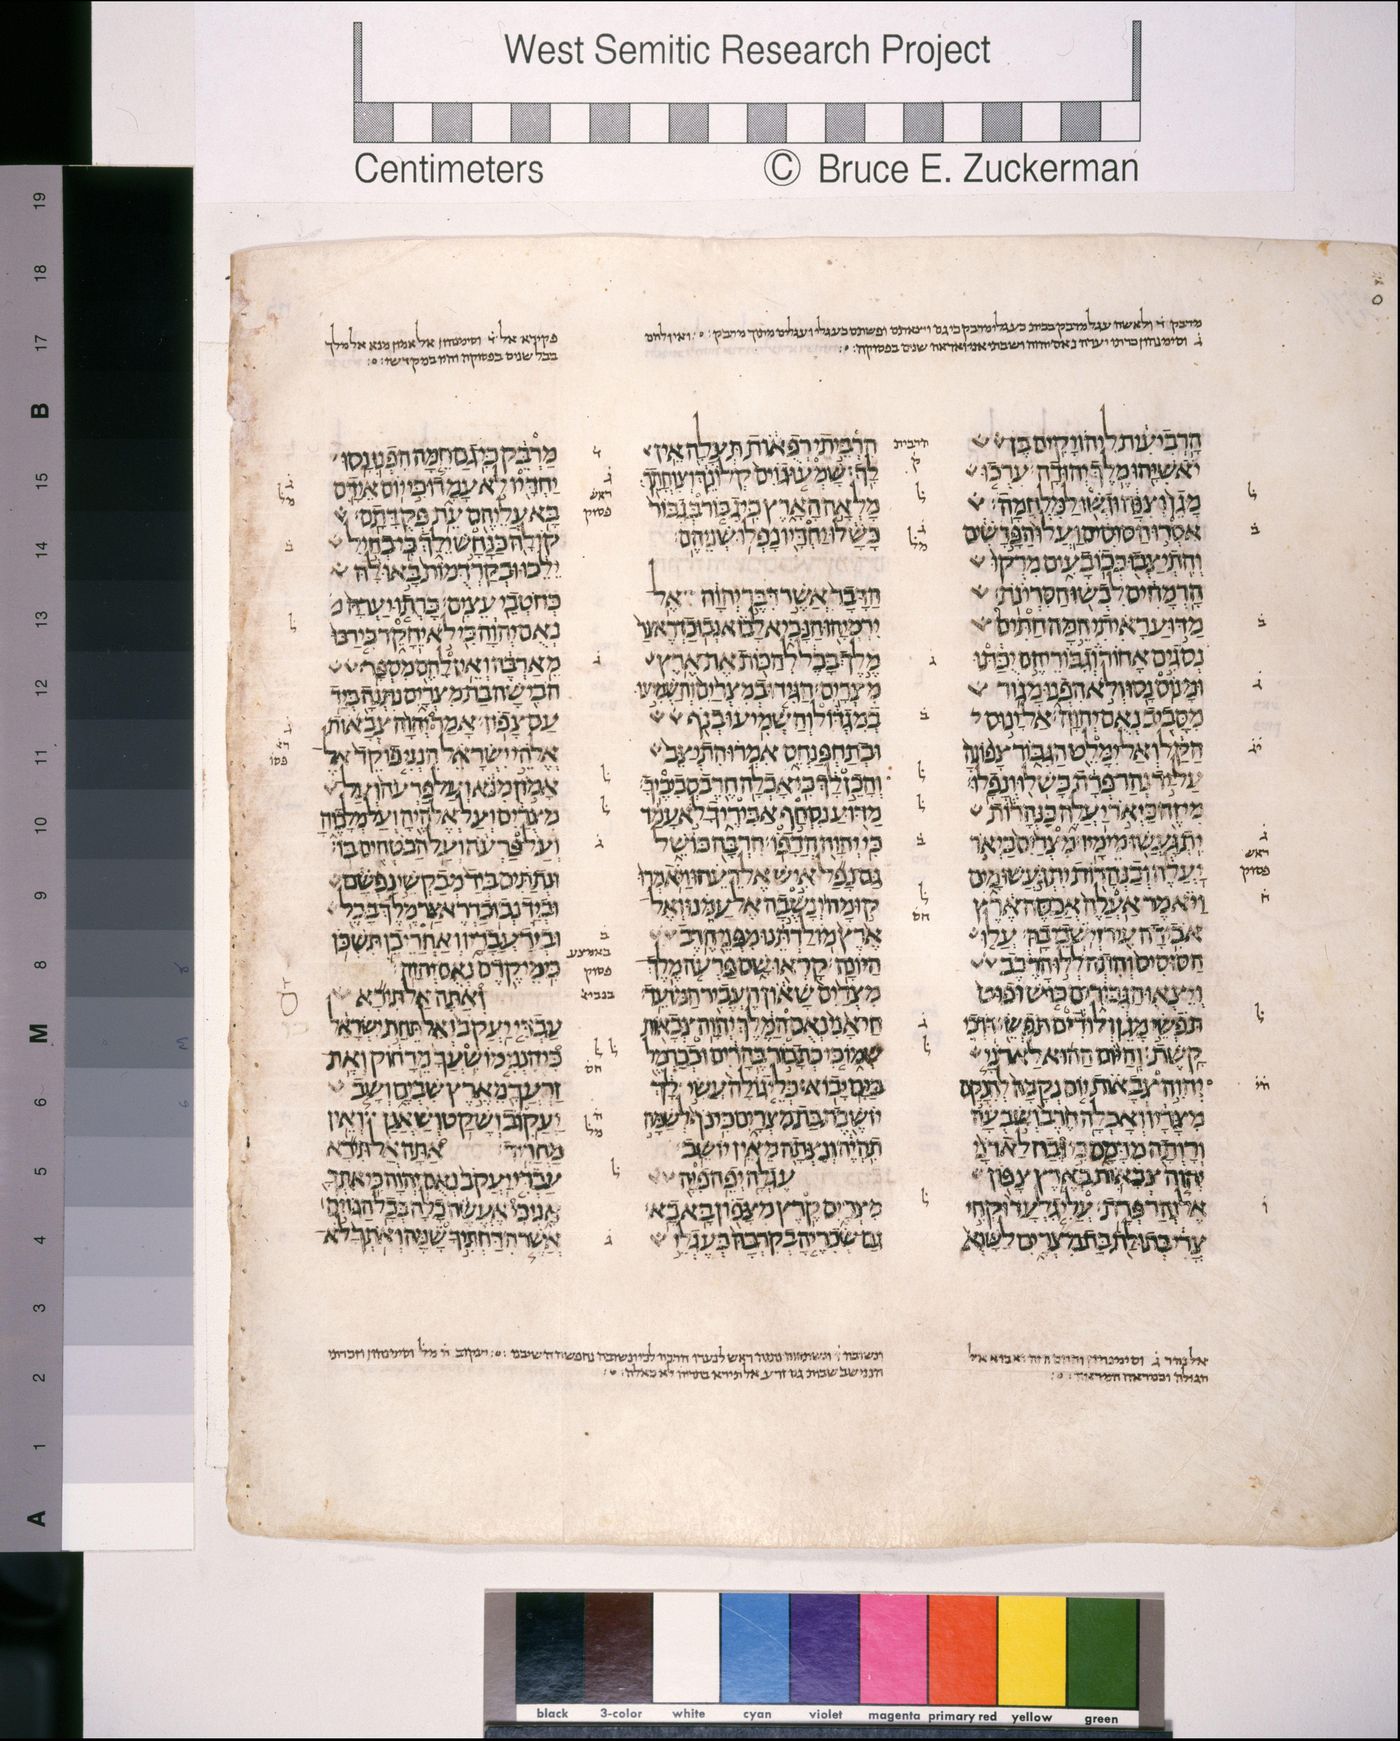 West Semitic Research Project
Centimeters © Bruce E. Zuckerman
הרביעית ליהויקים בן
יאשיהו מלך יהודה ערכו
מגן וצנה וגשו למלחמה
אסרו הסוסים ועלו הפרשים
והתיצבו בכובעים מרקו
הרמחים לבשו הסרינת
מדוע ראיתי המה חתים
נסגים אחור וגבוריהם יכתו
ומנוס נסו ולא הפנו מגור
מסביב נאם יהוה אל ינוס
הקל ואל ימלט הגבור צפונה
על יד נהר פרת כשלו ונפלו
מי זה כיאר יעלה כנהרות
יתגעשו מימיו מצרים כיאר
יעלה וכנהרות יתגעשו מים
ויאמר אעלה אכסה ארץ
אבידה עיר וישבי בה עלו
הסוסים והתהללו הרכב
ויצאו הגבורים כוש ופוט
תפשי מגן ולודים תפשי דרכי
קשת והיום ההוא לאדני
יהוה צבאות יום נקמה להנקם
מצריו ואכלה חרב ושבעה
ורותה מדמם כי זבח לאדני
יהוה צבאות בארץ צפון
אל נהר פרת עלי גלעד וקחי
צרי בתולת בת מצרים לשוא
הרביתי רפאות תעלה אין
לך שמעו גוים קלונך וצוחתך
מלאה הארץ כי גבור בגבור
כשלו יחדיו נפלו שניהם
הדבר אשר דבר יהוה אל
ירמיהו הנביא לבוא נבוכדראצר
מלך בבל להכות את ארץ
מצרים הגידו במצרים והשמיעו
במגדול והשמיעו בנף
ובתחפנחס אמרו התיצב
והכן לך כי אכלה חרב סביביך
מדוע נסחף אביריך לא עמד
כי יהוה הדפו הרבה כושל
גם נפל איש אל רעהו ויאמרו
קומה ונשבה אל עמנו ואל
ארץ מולדתנו מפני חרב
היונה קראו שם פרעה מלך
מצרים שאון העביר המועד
חי אני נאם המלך יהוה צבאות
שמו כי כתבור בהרים וככרמל
בים יבוא כלי גולה עשי לך
יושבת בת מצרים כי נף לשמה
תהיה ונצתה מאין יושב
עגלה יפה פיה
מצרים קרץ מצפון בא בא
גם שכריה בקרבה כעגלי
מרבק כי גם המה הפנו נסו
יחדיו לא עמדו כי יום אידם
בא עליהם עת פקדתם
קולה כנחש ילך כי בחיל
ילכו ובקרדמות באו לה
כחטבי עצים כרתו יערה
נאם יהוה כי לא יחקר כי רבו
מארבה ואין להם מספר
הבישה בת מצרים נתנה ביד
עם צפון אמר יהוה צבאות
אלהי ישראל הנני פוקד אל
אמון מנא ועל פרעה ועל
מצרים ועל אלהיה ועל מלכיה
ועל פרעה ועל הבטחים בו
ונתתים ביד מבקשי נפשם
וביד נבוכדראצר מלך בבל
וביד עבדיו ואחרי כן תשכן
כימי קדם נאם יהוה
ואתה אל תירא
עבדי יעקב ואל תחת ישראל
כי הנני מושעך מרחוק ואת
זרעך מארץ שבים ושב
יעקוב ושקט ושאנן ואין
מחריד אתה אל תירא
עבדי יעקב נאם יהוה כי אתך
אני כי אעשה כלה בכל הגוים
אשר הדחתיך שמה ואתך לא
19
18
17
B
15
14
13
12
11
10
9
8
M
6
5
4
3
2
1
A
black 3-color white cyan violet magenta primary red yellow green